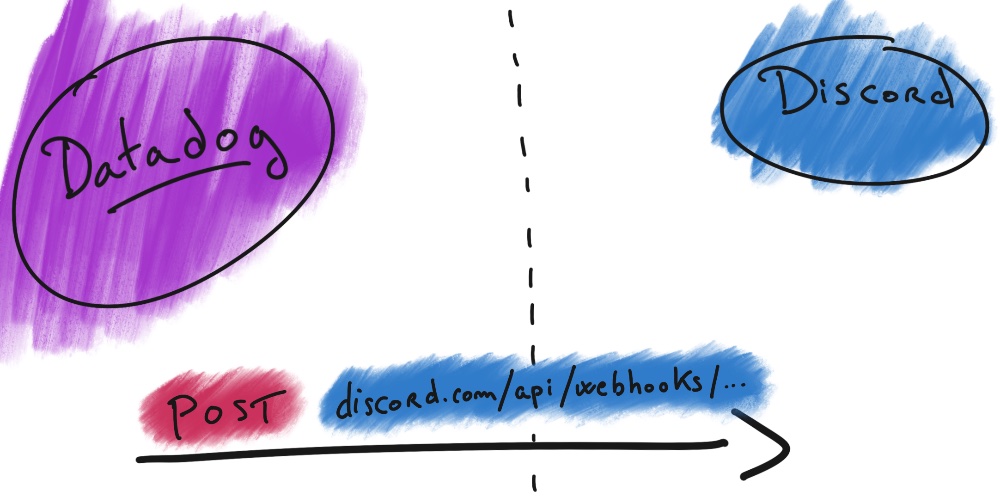 Datadog
Discord
POST discord.com/api/webhooks/...